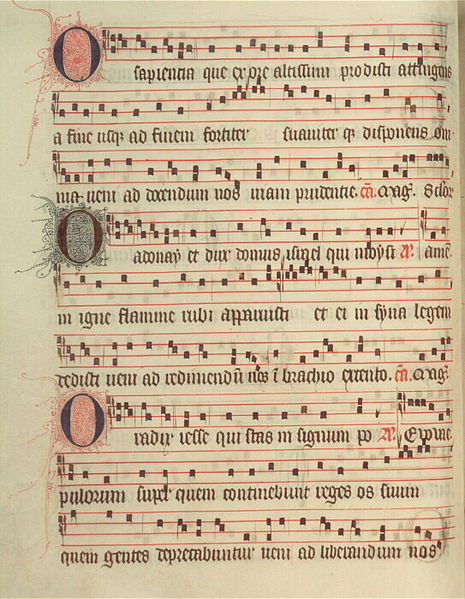 O sapientia que ex ore altissimi prodisti attingens
a fine usq; ad finem fortiter suaviter q; disponens om
nia veni ad docendum nos viam prudentie. c̄a. Mag̃.
O adonay et dux domus israel qui moysi
in igne flamme rubi apparuisti et ei in syna legem
dedisti veni ad redimendū nos ī brachio extento. c̄a. Mag̃.
O radix iesse qui stas in signum po
pulorum super quem continebunt reges os suum
quem gentes deprecabuntur veni ad liberandum nos